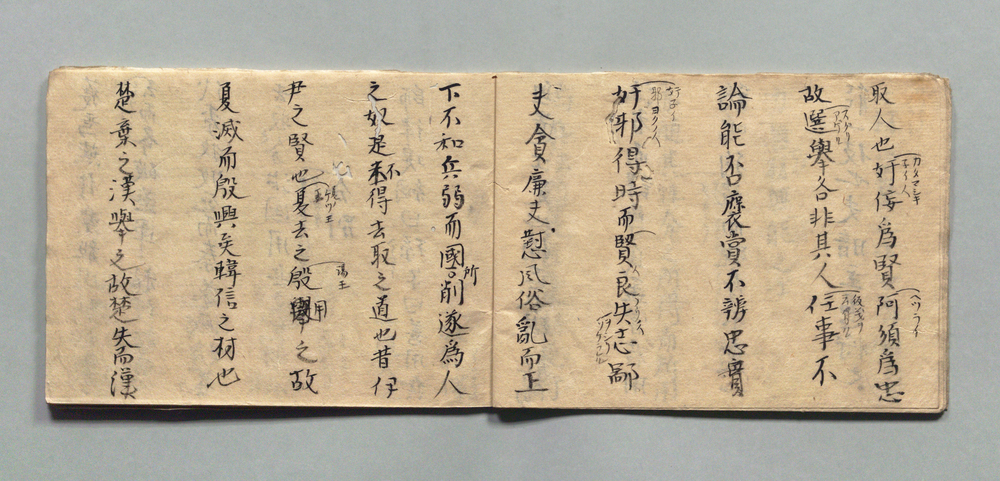 取人也奸佞為賢阿須為忠
故選舉各非其人任事不
論能否癈賞不辨忠實
奸邪得時而賢良失志鄙
夫貪廉夫懟風俗亂而上
下不和兵弱而國所削遂為人
之奴是不来得去取之道也昔伊
尹之賢也夏去之殷用之故
夏滅而殷興矣韓信之材也
楚棄之漢舉之故楚失而漢